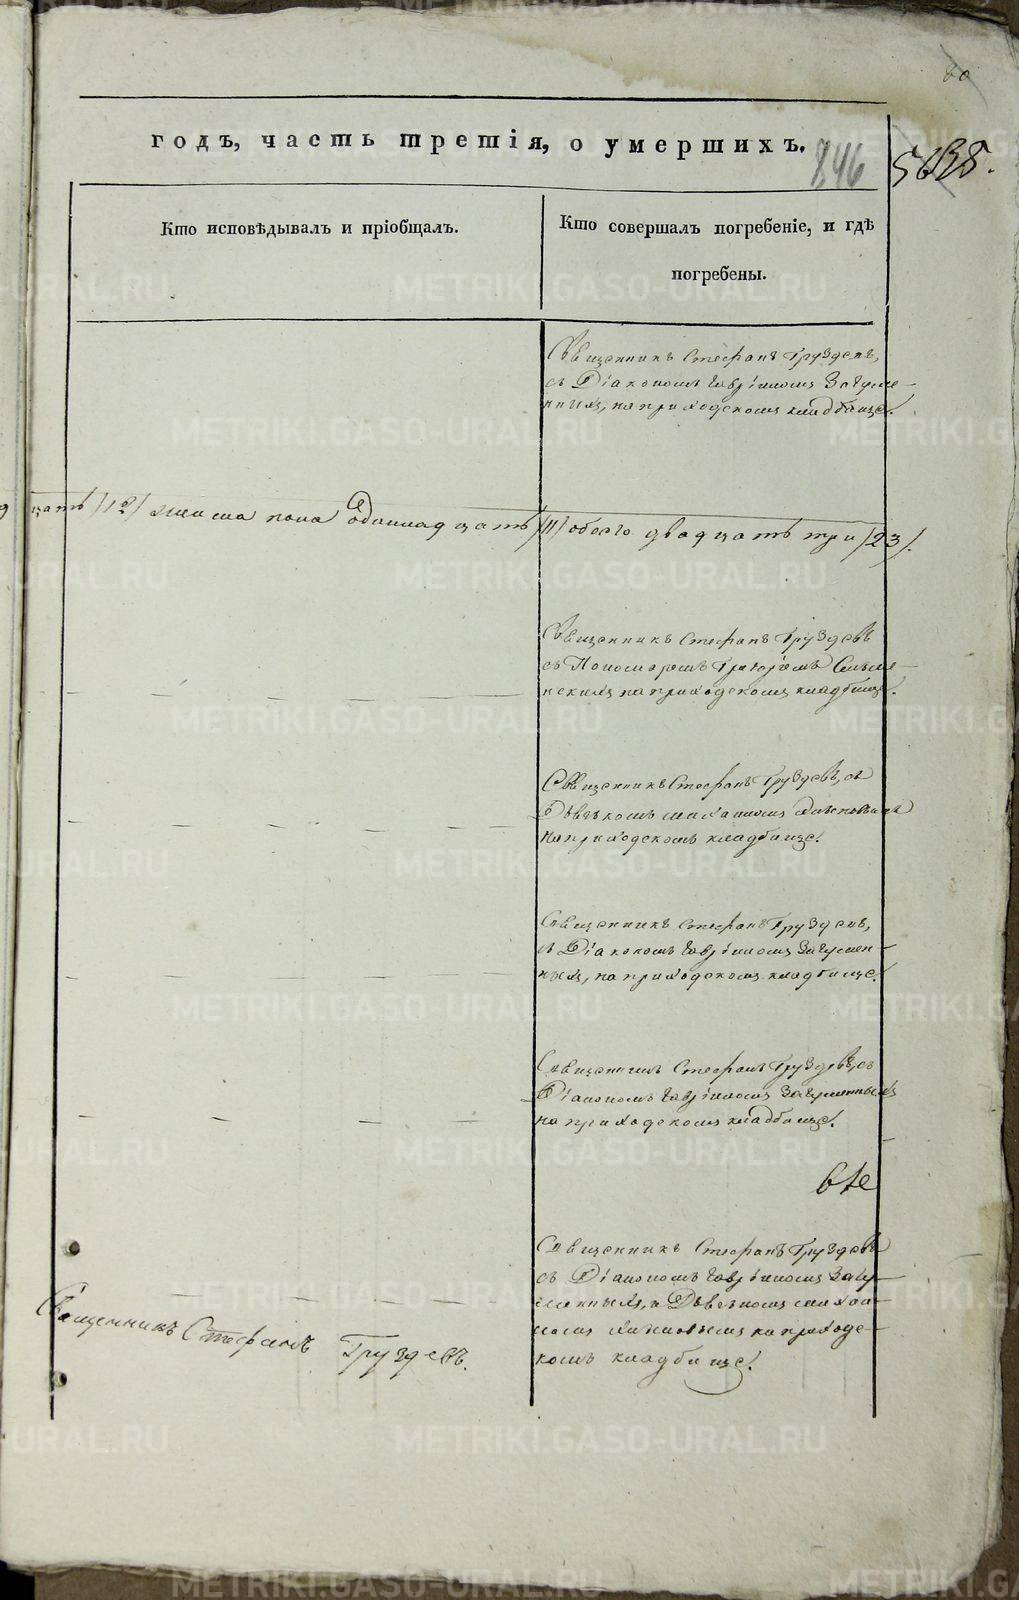 80
годъ, часть третія, о умершихъ.
846
Кто исповѣдывалъ и пріобщалъ.
Кто совершалъ погребеніе, и гдѣ
погребены.
Священникъ Стефанъ Груздевъ,
съ Діакономъ Гавріиломъ Загуме-
ннымъ, на приходскомъ кладбище.
цать /12/ женска пола одиннадцать /11/ обоего двадцать три /23/.
Священникъ Стефанъ Груздевъ
съ Пономаремъ Григоріемъ
на приходскомъ кладбище.
Священникъ Стефанъ Груздевъ, съ
Дьячкомъ Михаиломъ
на приходскомъ кладбище.
Священникъ Стефанъ Груздевъ,
съ Діакономъ Гавріиломъ Загумен-
нымъ, на приходскомъ кладбище.
Священникъ Стефанъ Груздевъ, съ
Діакономъ Гавріиломъ Загуменнымъ
на приходскомъ кладбище.
Священникъ Стефанъ Груздевъ
съ Діакономъ Гавріиломъ Загу-
меннымъ, и Дьячкомъ Михаи-
ломъ на приходс-
комъ кладбище.
Священникъ Стефанъ Груздевъ.
METRIKI.GASO-URAL.RU